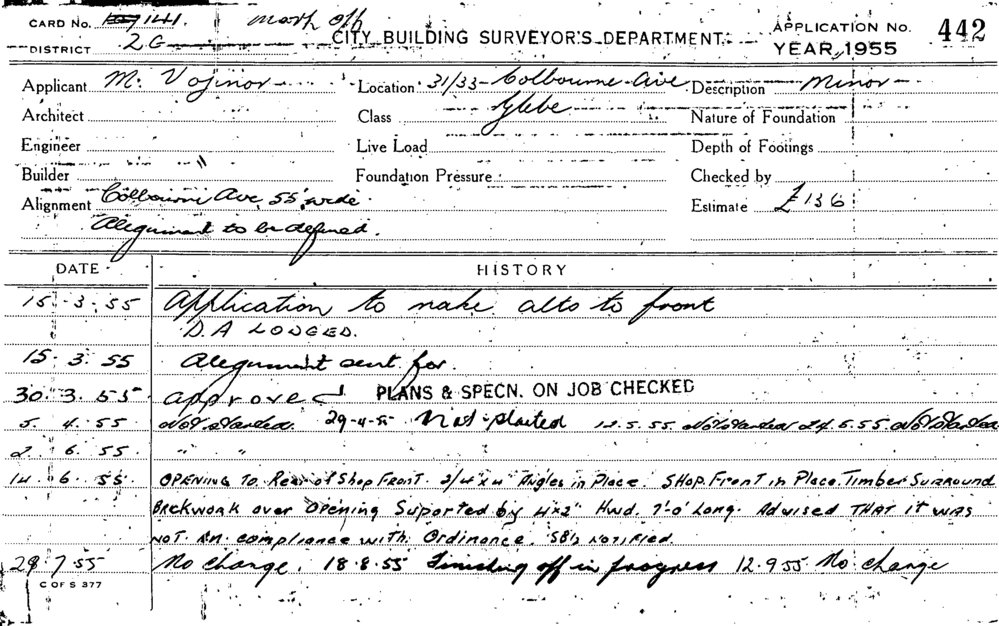 CARD No. 141. mark off
APPLICATION No. 442
DISTRICT 2G CITY BUILDING SURVEYOR'S DEPARTMENT YEAR 1955
Applicant M. Vojinov Location 31/33 Colbourne Ave Description Minor
Architect Class Glebe Nature of Foundation
Engineer Live Load Depth of Footings
Builder " Foundation Pressure Checked by
Alignment Colbourne Ave 55' wide Estimate £136
Alignment to be defined.
DATE HISTORY
15.3.55 Application to make alts to front
D.A LODGED.
15.3.55 Alignment sent for.
30.3.55 approved PLANS & SPECN. ON JOB CHECKED
5.4.55 Not Started. 29-4-55 Not started 12.5.55 Not Started 24.5.55 Not Started
2.6.55 " "
14.6.55 OPENING To Rear of Shop Front. 2/4"x4" Angles in Place. SHOP Front in Place. Timber SURROUND
BRCKWORK over OPENING Suported by 4x2" Hwd. 7'-0" Long. Advised THAT it was
NOT in compliance with Ordinance. SBI's NOTIFIED.
29.7.55 No change. 18.8.55 Finishing off in progress 12.9.55 No change
C OF S 377